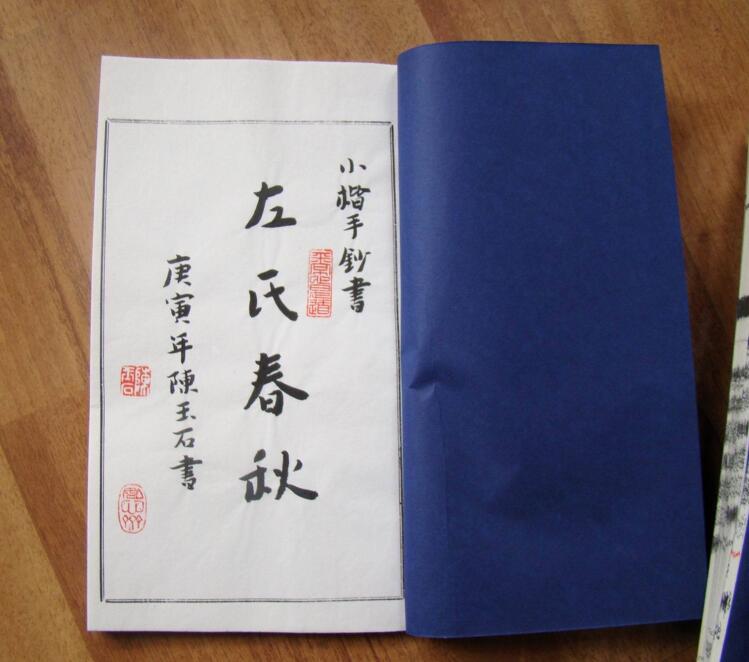 小楷手鈔書
左氏春秋
庚寅年陳玉石書